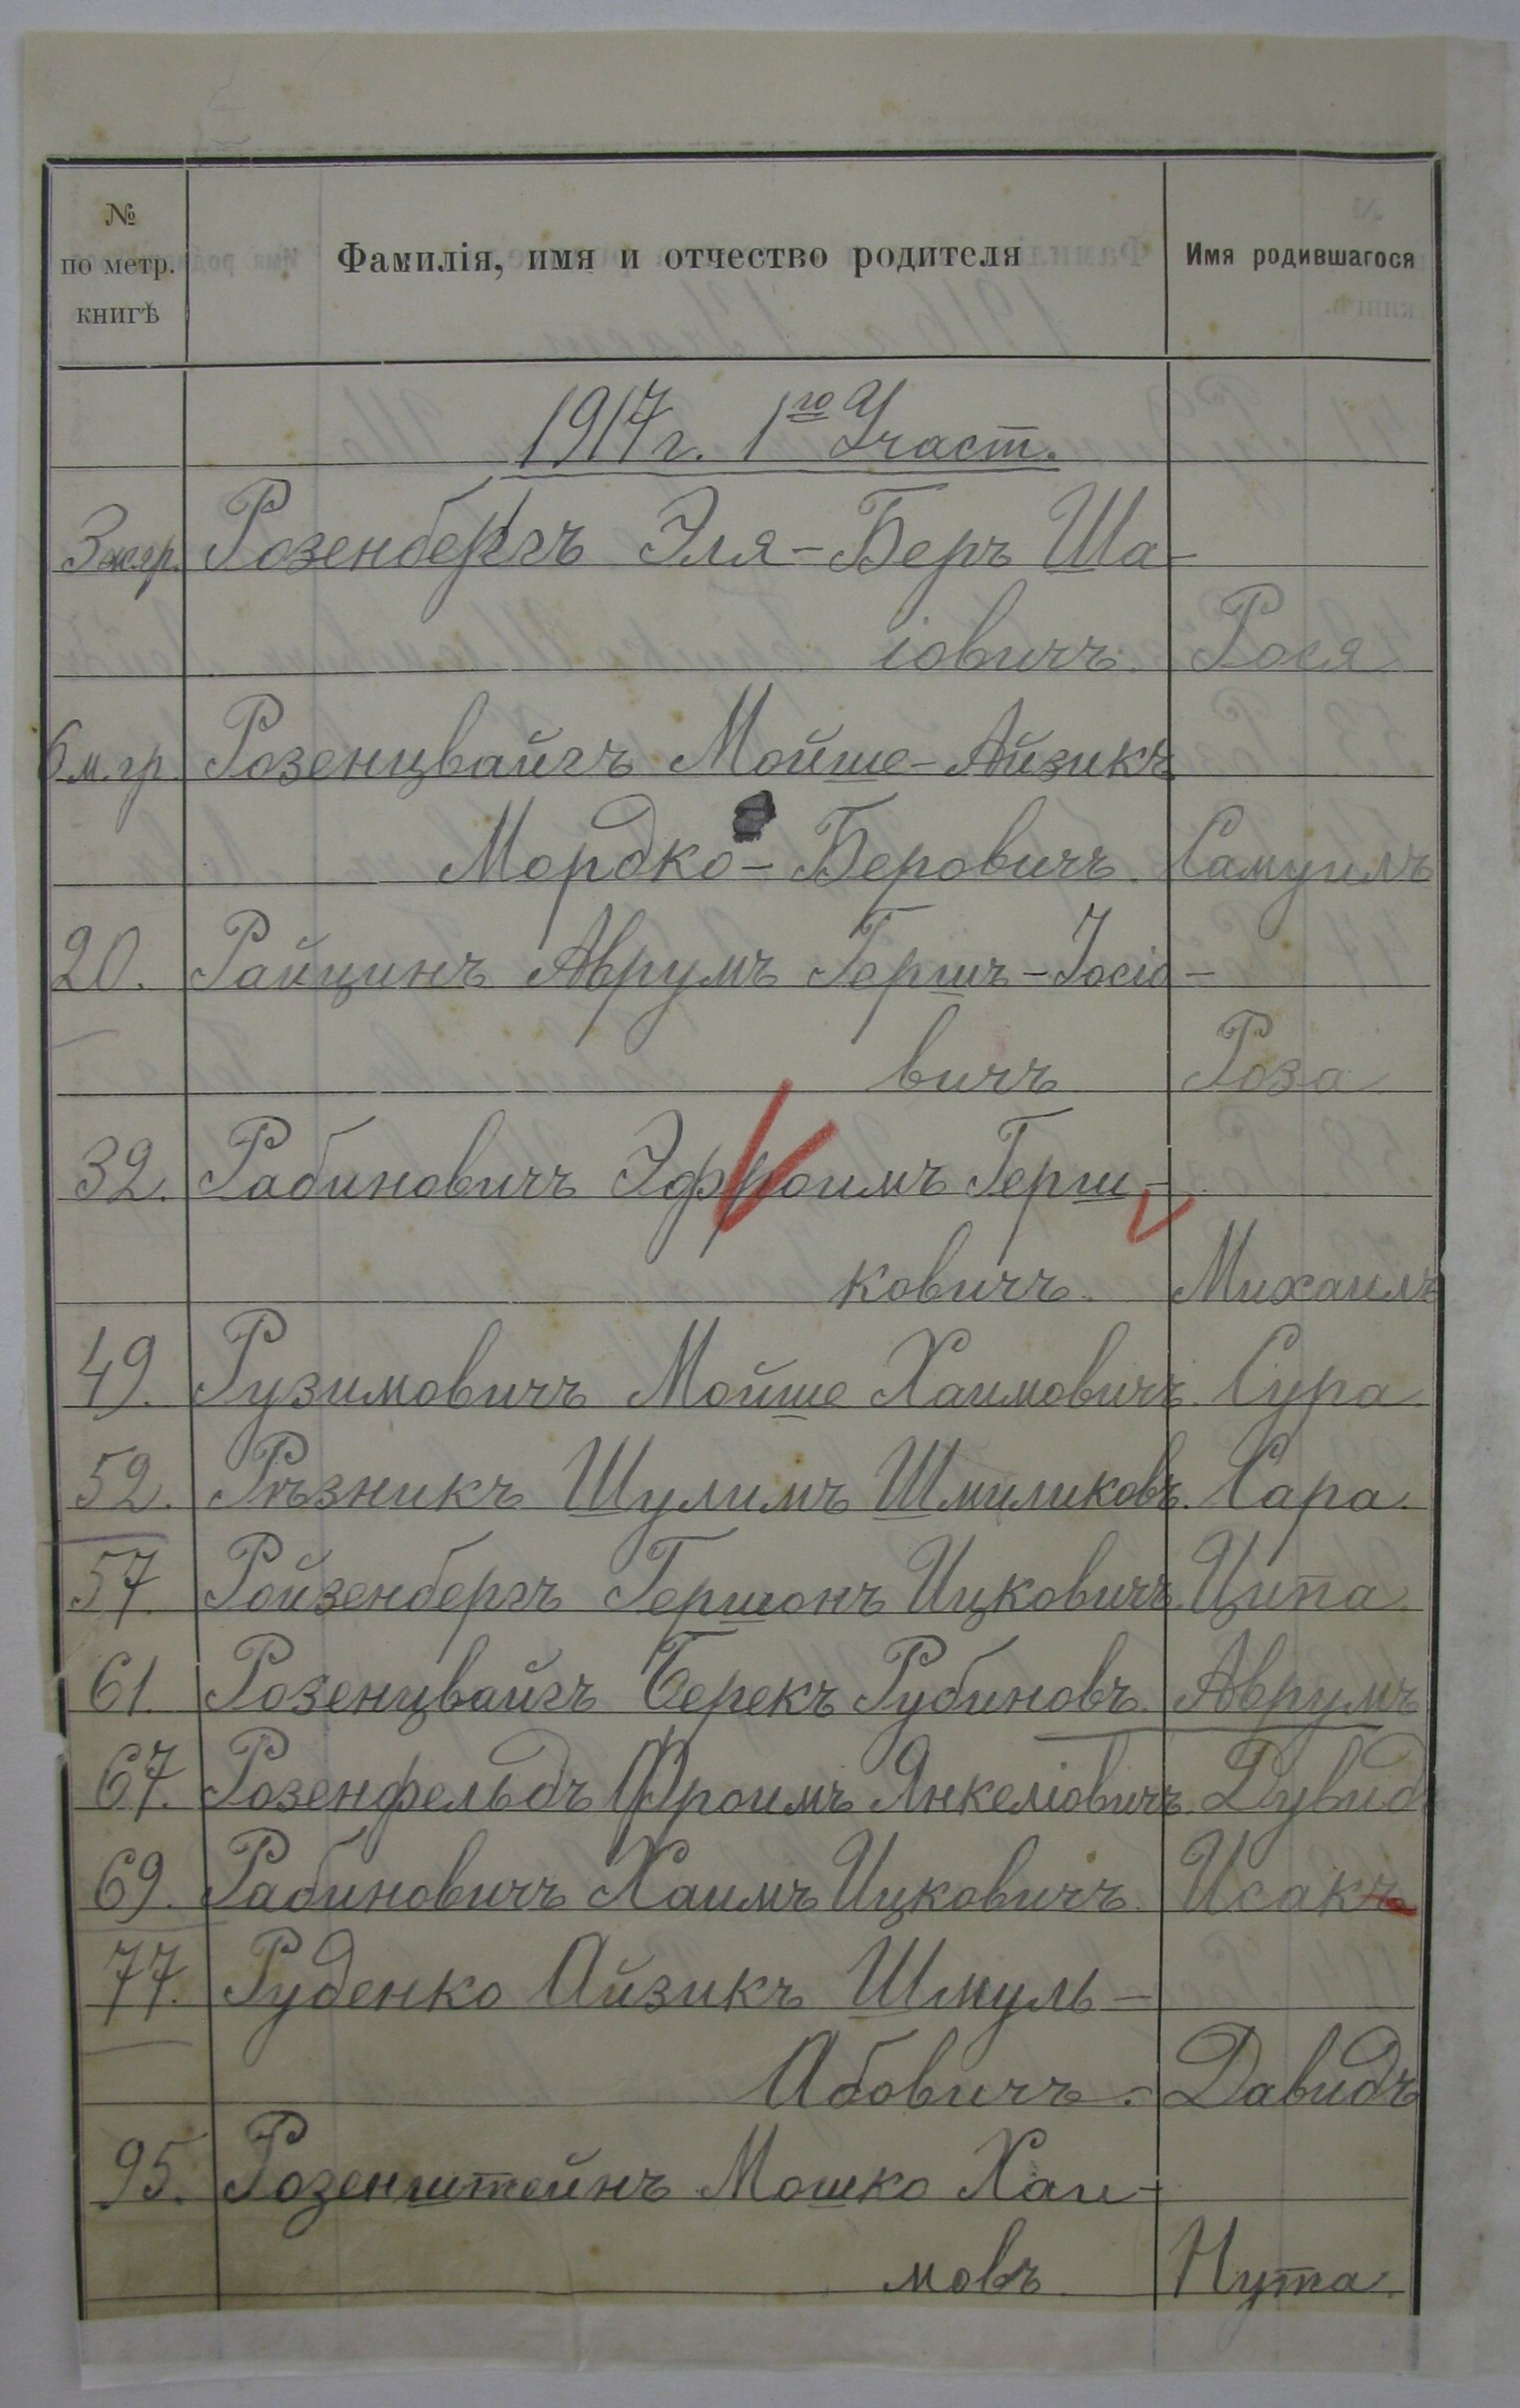 № по метр. книгѣ Фамилія, имя и отчество родителя Имя родившагося
1917 г. 1го Участ.
3 ж.гр. Розенбергъ Эля-Беръ Ша-
іовичъ. Рося
6 м. гр. Розенцвайгъ Мойше-Айзикъ
Мордко-Беровичъ. Самуилъ
20. Райцинъ Аврумъ Гершъ-Іосіо-
вичъ Роза
32. Рабиновичъ Эфроимъ Герш-
ковичъ. Михаилъ
49. Рузимовичъ Мойше Хаимовичъ. Сура.
52. Рѣзникъ Шулимъ Шмиликовъ. Сара.
57. Ройзенбергъ Гершонъ Ицковичъ. Ципа.
61. Розенцвайгъ Берекъ Рубиновъ. Аврумъ
67. Розенфельдъ Фроимъ Янкеліовичъ. Дувид
69. Рабиновичъ Хаимъ Ицковичъ. Исакъ
77. Руденко Айзикъ Шмуль-
Абовичъ. Давидъ
95. Розенштейнъ Мошко Хаи-
мовъ. Нута.